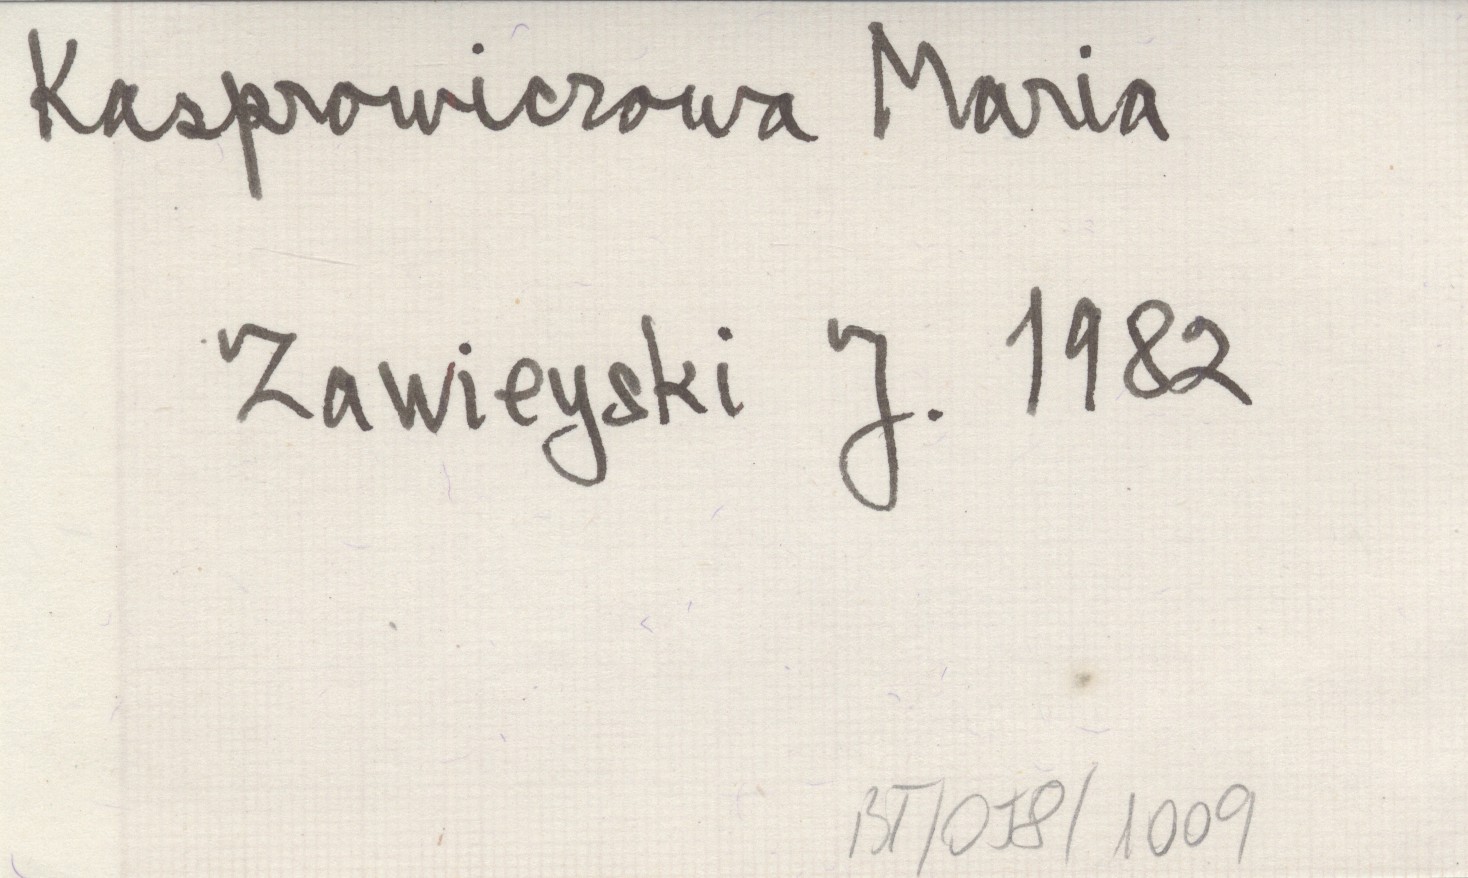 Kasprowiczowa Maria
Zawieyski J. 1982
BT/OJ8/1009